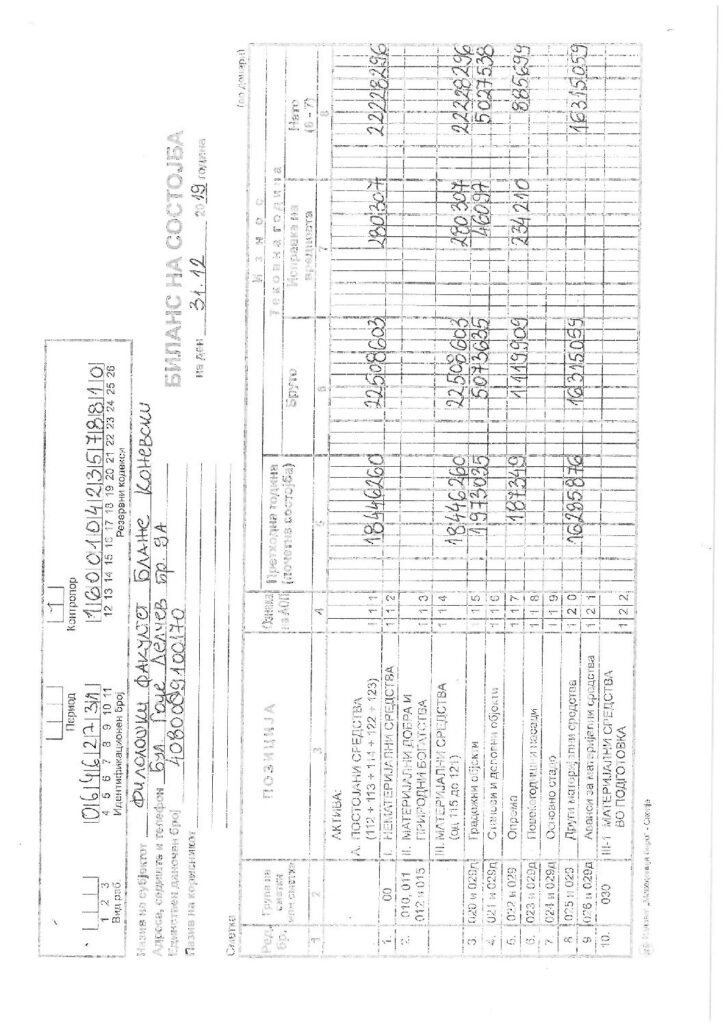 1 2 3 4 5 6 7 8 9 10 11 12 13 14 15 16 17 18 19 20 21 22 23 24 25 26
Вид раб. Идентификационен број Резервни кодекси
Период Контролор
1
Назив на субјектот Филолошки факултет Блаже Конески
Адреса, седиште и телефон Бул Гоце Делчев бр. 9А
Единствен даночен број 4080009100170
Назив на корисникот
Сметка
БИЛАНС НА СОСТОЈБА
на ден 31.12 2019 година
(во денари)
Ред. бр. Група на сметки или сметка ПОЗИЦИЈА Ознака на АОП Претходна година (почетна состојба) Износ
Тековна година
Бруто Исправка на вредноста Нето (6 - 7)
1 2 3 4 5 6 7 8
АКТИВА:
А. ПОСТОЈАНИ СРЕДСТВА (112 + 113 + 114 + 122 + 123) 111 18446260 22508603 280307 22228296
1. 00 I. НЕМАТЕРИЈАЛНИ СРЕДСТВА 112
2. 010, 011 012 и 015 II. МАТЕРИЈАЛНИ ДОБРА И ПРИРОДНИ БОГАТСТВА 113
III. МАТЕРИЈАЛНИ СРЕДСТВА (од 115 до 121) 114 18446260 22508603 280307 22228296
3. 020 и 029д Градежни објекти 115 1973035 5073635 46097 5027538
4. 021 и 029д Станови и деловни објекти 116
5. 022 и 029 Опрема 117 187349 1119909 234210 885699
6. 023 и 029д Повеќегодишни насади 118
7 024 и 029д Основно стадо 119
8 025 и 029 Други материјални средства 120 16285876 16315059 16315059
9 026 и 029д Аванси за материјални средства 121
10. 030 III-1 МАТЕРИЈАЛНИ СРЕДСТВА ВО ПОДГОТОВКА 122